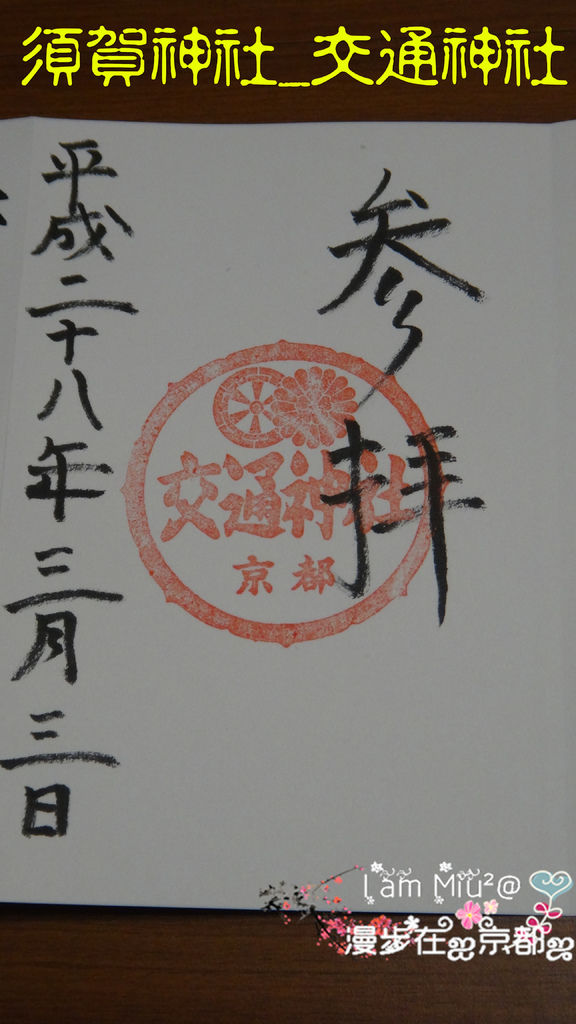 須賀神社_交通神社
参拝
交通神社
京都
平成二十八年三月三日
I am Miu²@
漫步在ஐ京都ஐ